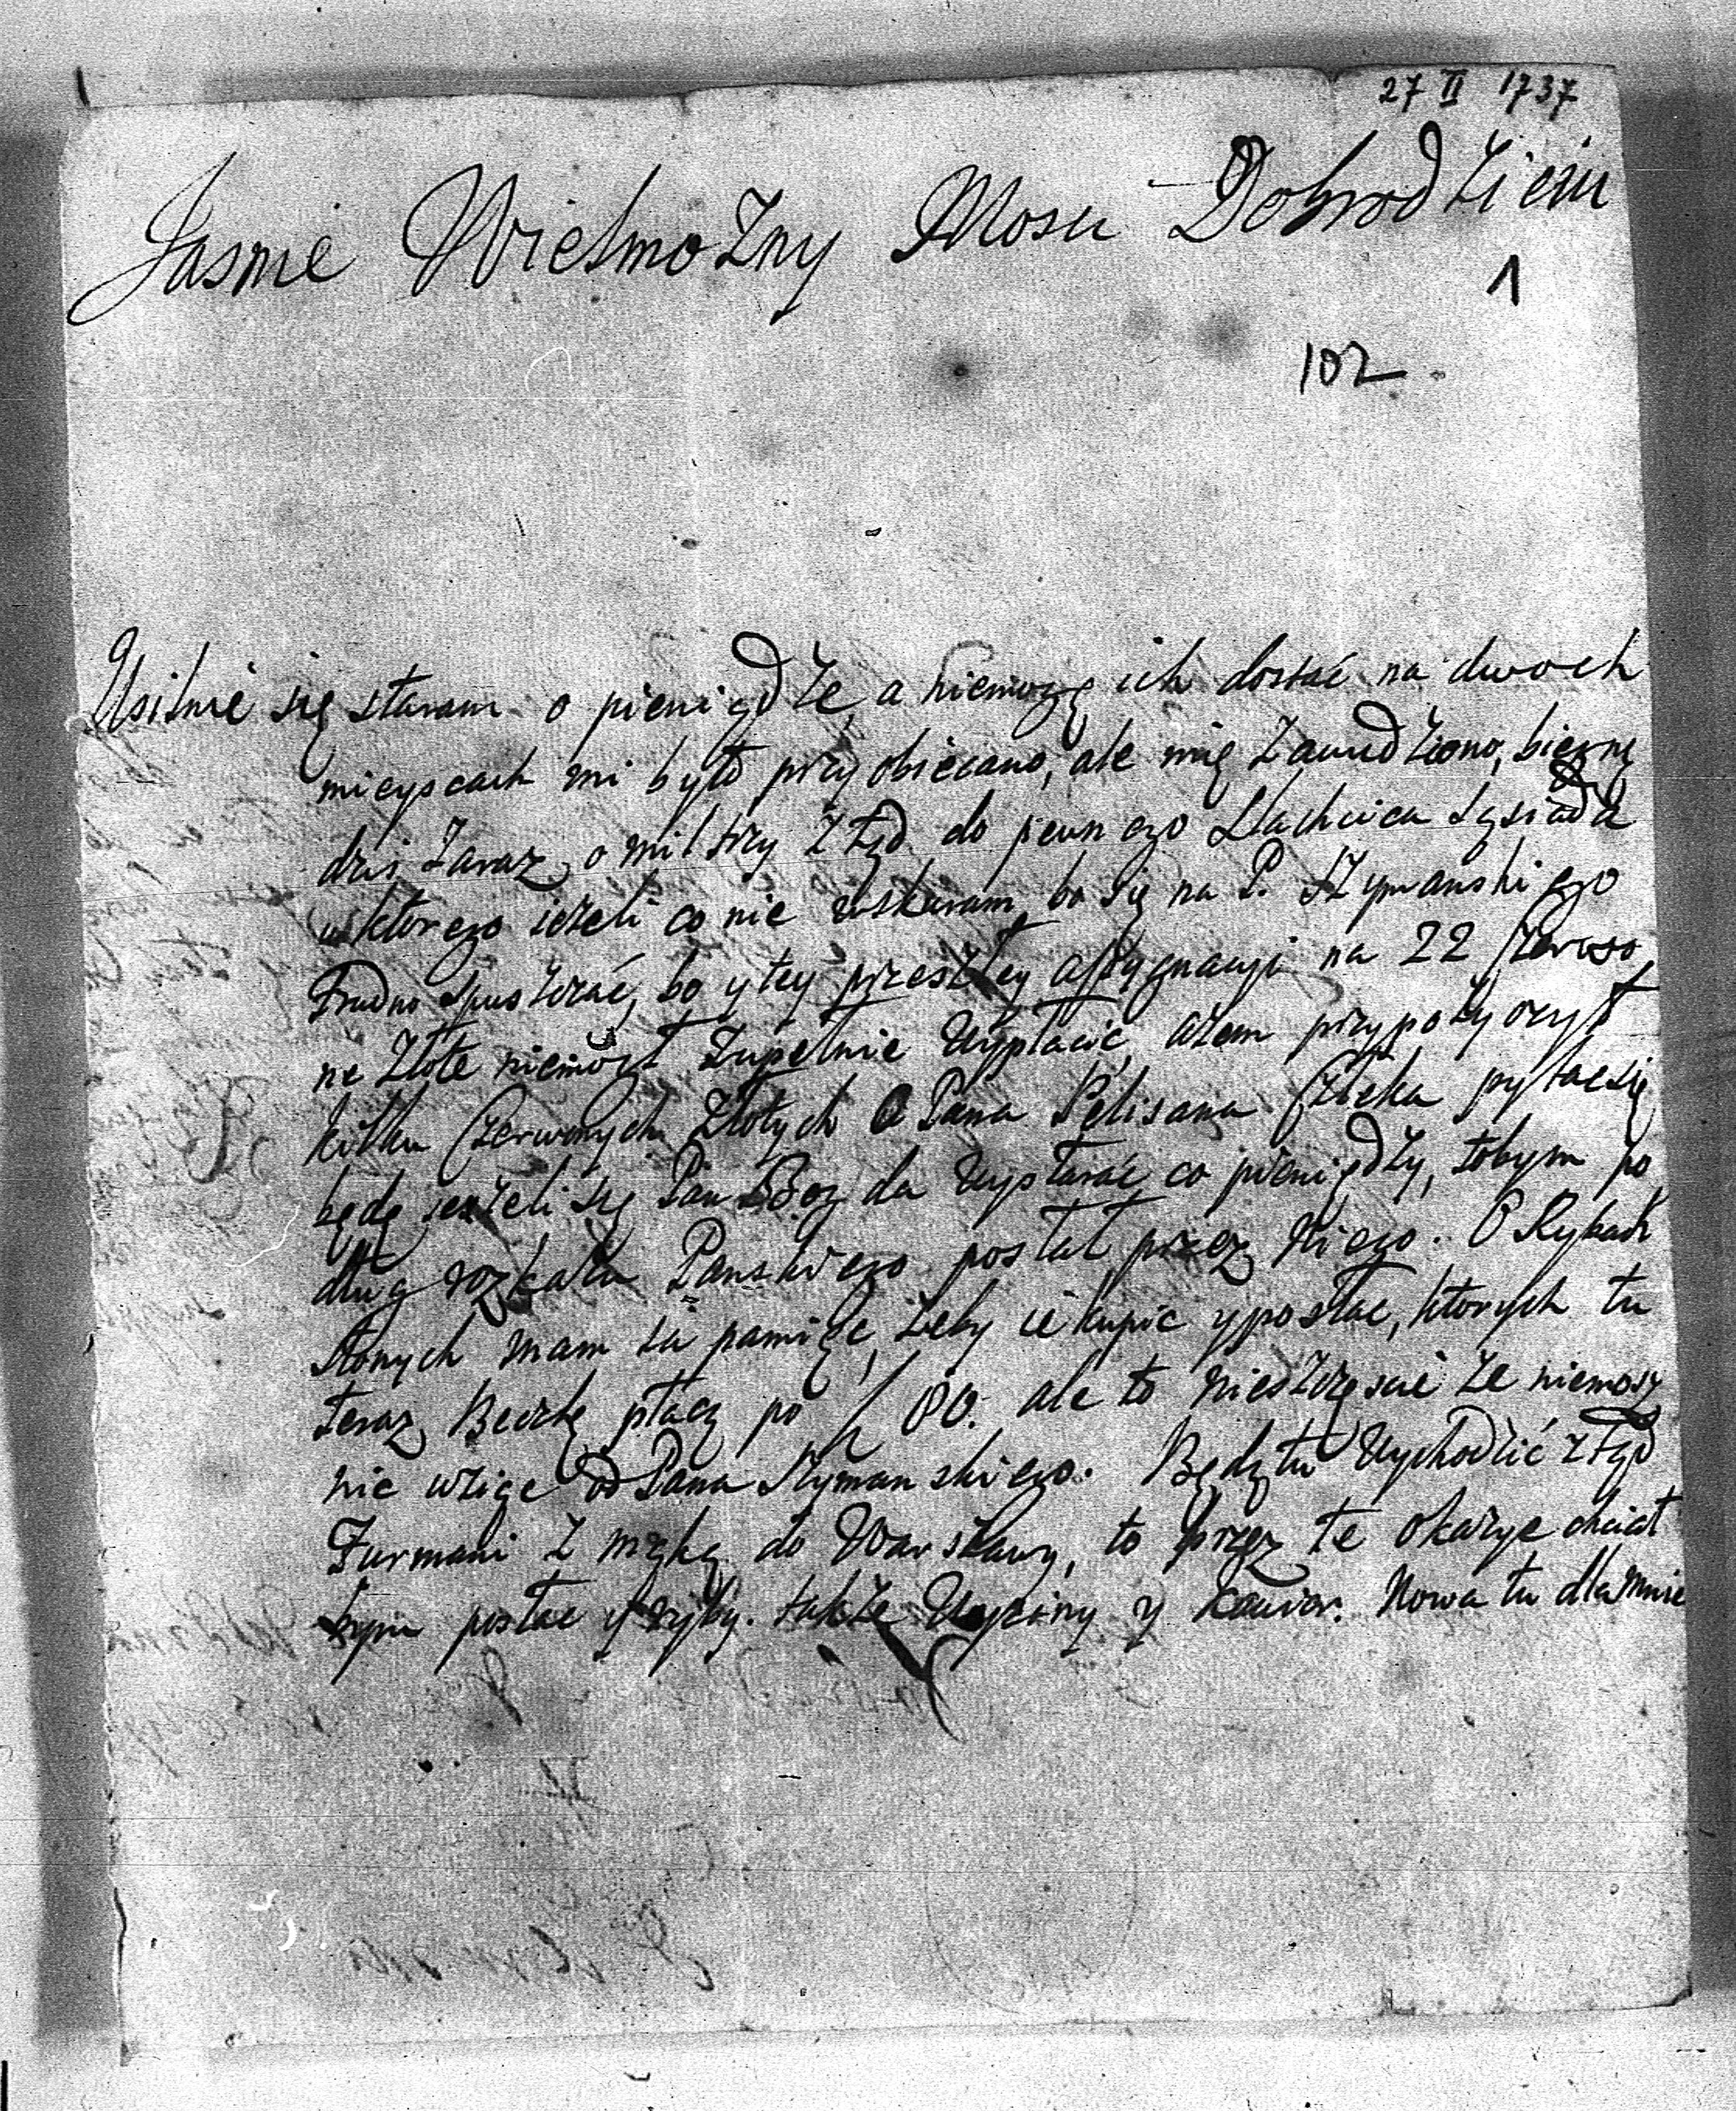 27 II 1737
Jasnie WielmoZny Mosci DobrodZieiu
1
102
Usilnie się staram o pieniądZe, a niemogę ich dostać na dwoch
mieyscach mi było przyobiecano, ale mię ZawiedZiono, biegnę
dziś Zaraz o mil trzy Ztąd do pewnego Slachcica Sąsiada
u ktorego ieżeli co nie wskuram, bo się na P. SZymanskiego
Trudno SpusZczać, bo y tey przeszłey assygnacyi na 22 Czerwo
ne Złote niemogł Zupełnie Wypłacić, ażem przypożyczył
kilku Czerwonych Złotych. O Pana Pelisana CZłeka pytać się
będę jeżeli się Pan Bog da Wystarać co pieniędZy, tobym po
dług rozkazu Panskiego posłał przez Niego. O Rybach
słonych mam ia pamięć, żeby ie kupic y posłac, ktorych tu
teraz Beczkę płacą po f 80. ale to niesZczęscie Ze niemogę
nic wZiąc od Pana SZymanskiego. Będą tu WychodZić ztąd
Furmani Z mąką do WarsZawy, to przez te okazye chciał
bym posłac y ryby. takZe Wyziny y Kawior. Nowa tu dla mnie